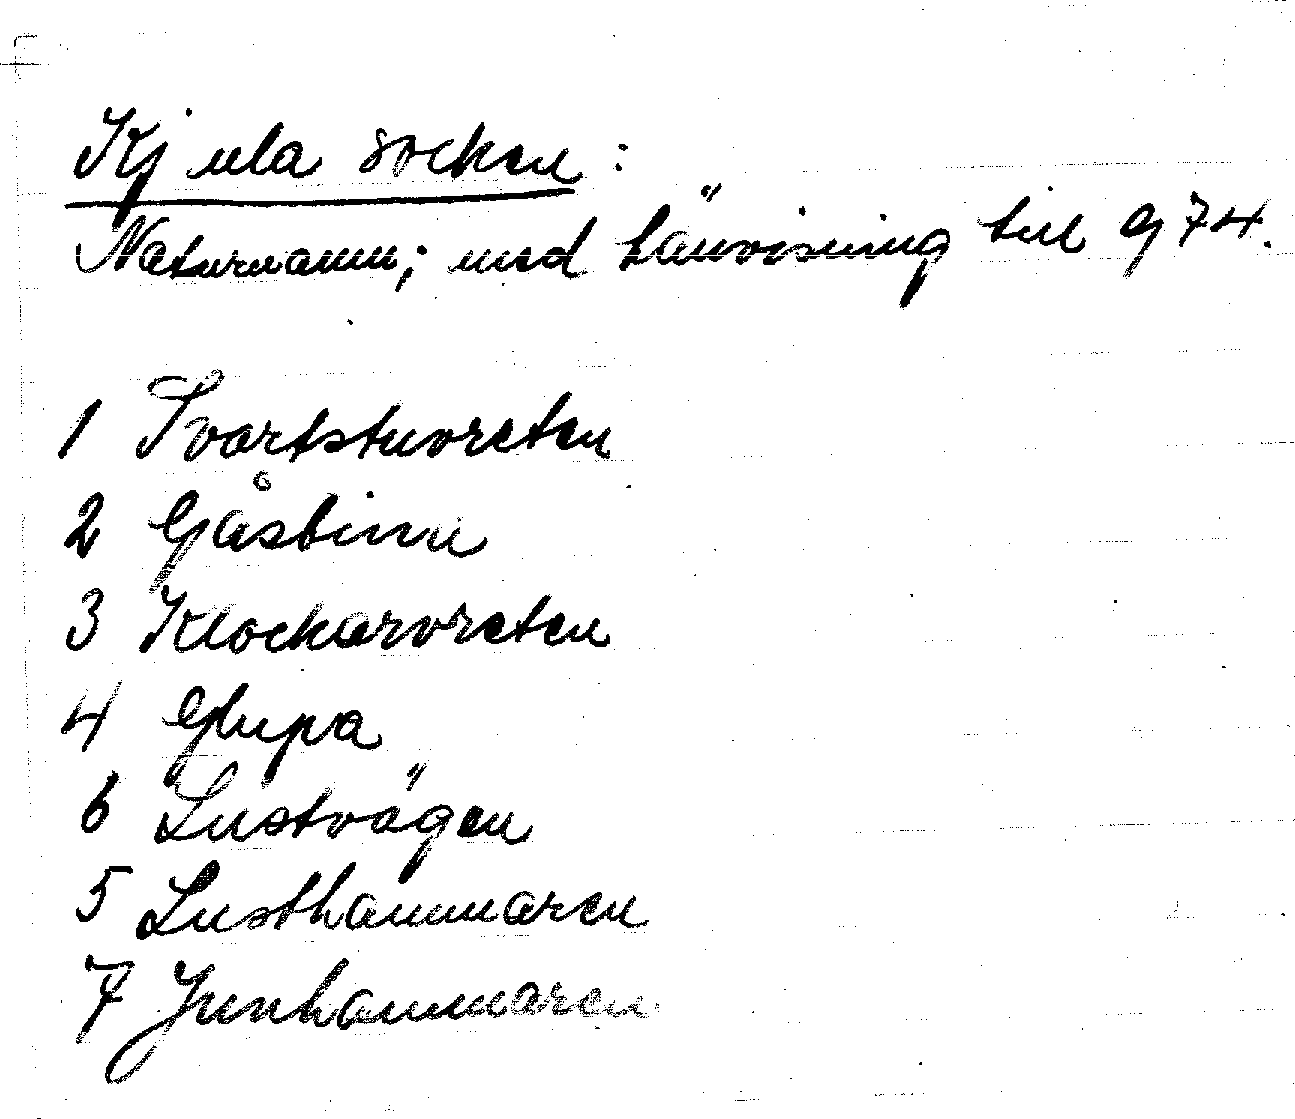 Kjula socken:
Naturnamn; med hänvisning till G 74.
1 Svartstuvreten
2 Gåsbinu
3 Klockarvreten
4 Glupa
6 Lustvägen
5 Lusthammaren
7 Junhammaren